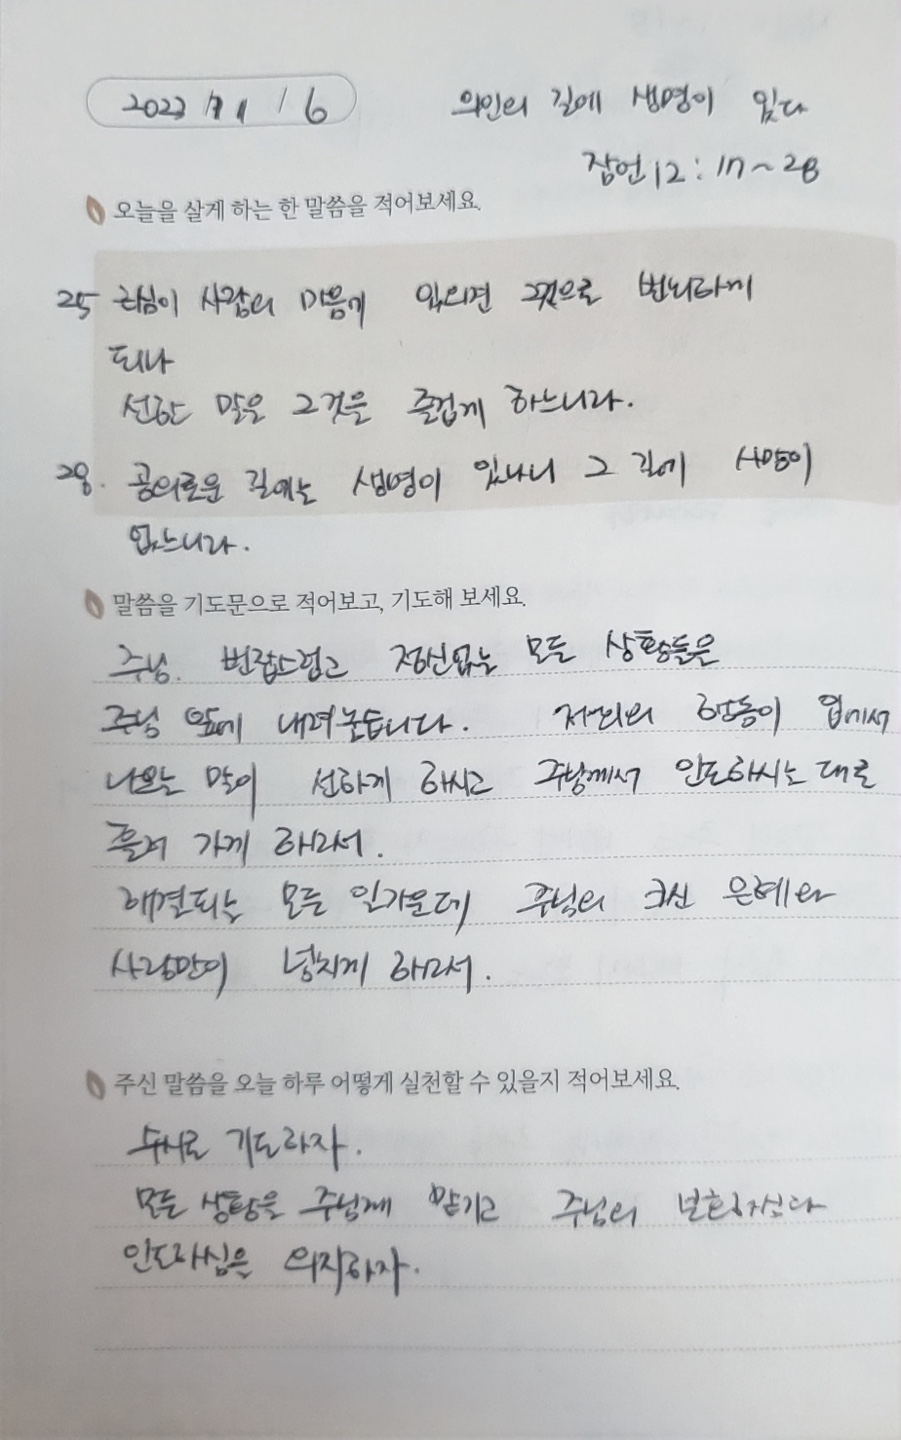 2023 / 11 / 6
의인의 길에 생명이 있다
잠언 12 : 17 ~ 28
오늘을 살게 하는 한 말씀을 적어보세요.
25 근심이 사람의 마음에 있으면 그것으로 번뇌하게
되나
선한 말은 그것을 즐겁게 하느니라.
28. 공의로운 길에는 생명이 있나니 그 길에 사망이
없느니라.
말씀을 기도문으로 적어보고, 기도해 보세요.
주님. 번잡스럽고 정신없는 모든 상황들을
주님 앞에 내려놓습니다. 저희의 행동이 입에서
나오는 말이 선하게 하시고 주님께서 인도하시는 대로
흘러 가게 하소서.
해결되는 모든 일가운데 주님의 크신 은혜와
사랑만이 넘치게 하소서.
주신 말씀을 오늘 하루 어떻게 실천할 수 있을지 적어보세요.
수시로 기도하자.
모든 상황을 주님께 맡기고 주님의
인도하심을 의지하자.